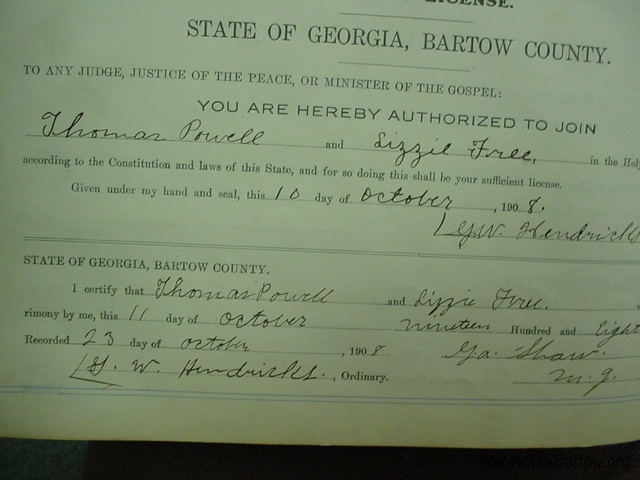 LICENSE.
STATE OF GEORGIA, BARTOW COUNTY.
TO ANY JUDGE, JUSTICE OF THE PEACE, OR MINISTER OF THE GOSPEL:
YOU ARE HEREBY AUTHORIZED TO JOIN
Thomas Powell and Lizzie Free, in the Holy
according to the Constitution and laws of this State, and for so doing this shall be your sufficient license.
Given under my hand and seal, this 10 day of October, 1908.
G.W. Hendricks
STATE OF GEORGIA, BARTOW COUNTY.
I certify that Thomas Powell and Lizzie Free.
rimony by me, this 11 day of October nineteen Hundred and Eight
Recorded 23 day of October, 1908 Shaw.
G. W. Hendricks., Ordinary.